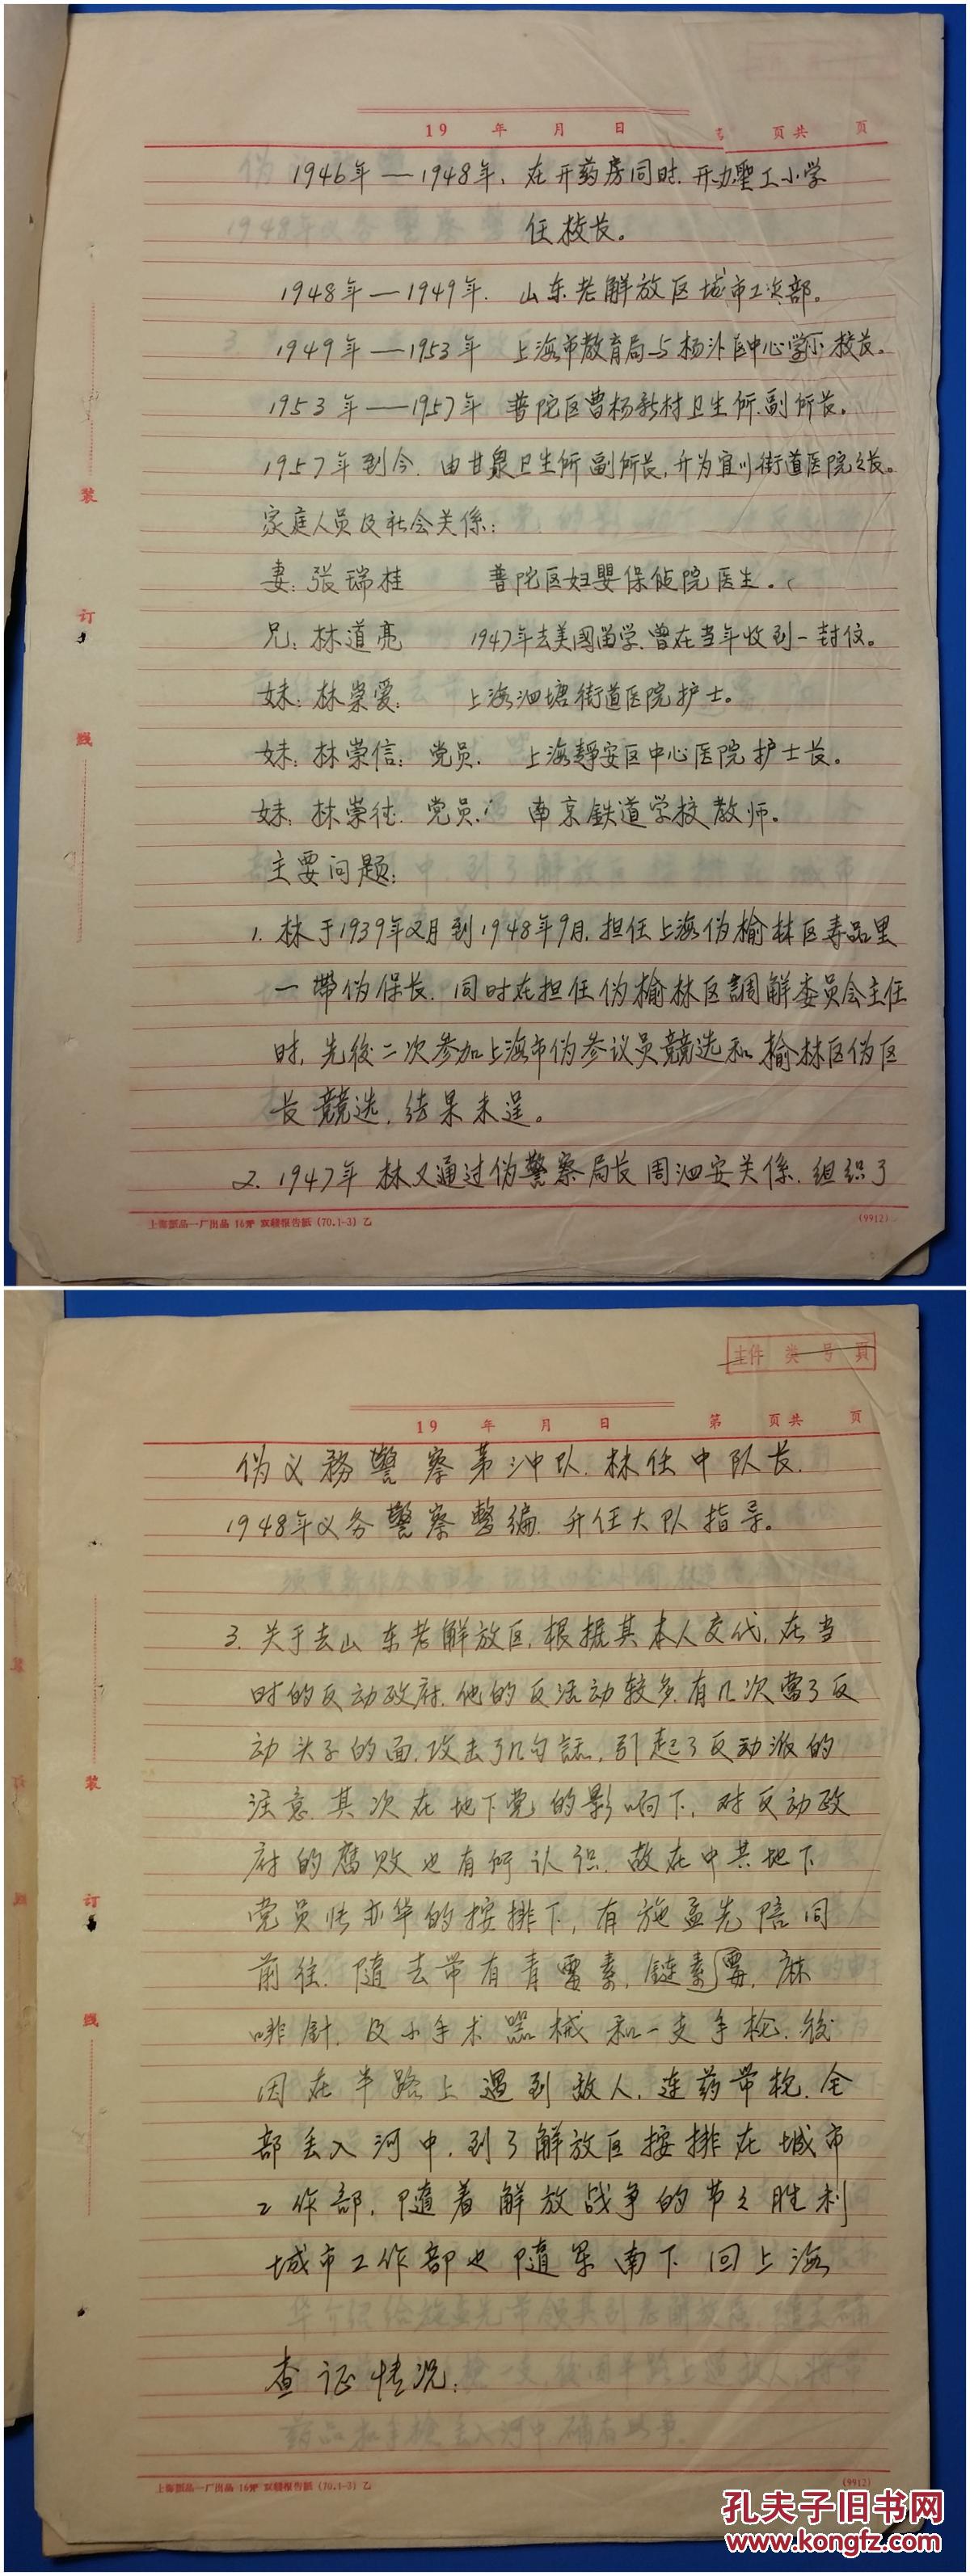 19 年 月 日 页共 页
1946年—1948年、在开药房同时.开办聖工小学
任校长。
1948年—1949年. 山东老解放区城市工作部。
1949年—1953年 上海市教育局与杨沪区中心学小校长。
1953年—1957年 普陀区曹杨新村卫生所.副所长。
1957年到今. 由甘泉卫生所副所长,升为宜川街道医院长。
家庭人员及社会关係:
妻:张瑞桂 普陀区妇婴保健院医生.
兄:林道亮 1947年去美國留学.曾在当年收到一封信。
妹:林崇爱: 上海泗塘街道医院护士。
妹:林崇信: 党员. 上海静安区中心医院护士长。
妹:林荣德. 党员. 南京鉄道学校教师。
主要问题:
1. 林于1939年2月到1948年9月.担任上海伪榆林区寿品里
一带伪保长.同时在担任伪榆林区調解委员会主任
时,先後二次参加上海市伪参议员競选和榆林区伪区
长競选,结果未逞。
2. 1947年林又通过伪警察局长周泗安关係.组织了
上海纸品一厂出品 16开 双线报告纸(70.1-3)乙 (9912)
主件 类 号 頁
19 年 月 日 第 页共 页
伪义務警察第 中队.林任中队长.
1948年义务警察整编.升任大队指导。
3. 关于去山东老解放区,根据其本人交代,在当
时的反动政府.他的反活动较多.有几次當了反
动头子的面.攻击了几句話,引起了反动派的
注意.其次在地下党的影响下,对反动政
府的腐败也有所认识.故在中共地下
党员张亦华的按排下,有施孟先陪同
前往.随去带有青霉素,鏈素霉,麻
啡針.及小手术器械和一支手枪.後
因在半路上遇到敌人.连药带枪.全
部丢入河中.到了解放区按排在城市
工作部.随着解放战争的节之胜利
城市工作部也随军南下.回上海
查证情况:
上海纸品一厂出品 16开 双线报告纸(70.1-3)乙 (9912)
装
订
线
装
订
线
孔夫子旧书网
www.kongfz.com